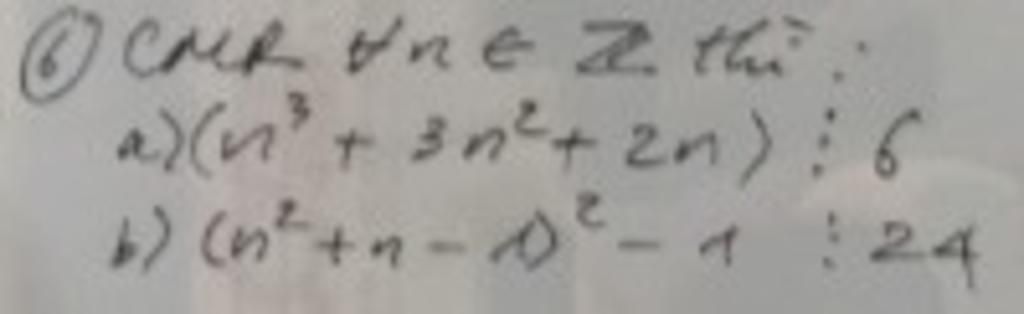 ⑥ CMR ∀n ∈ Z thì :
a) (n³ + 3n² + 2n) ⋮ 6
b) (n² + n - 1)² - 1 ⋮ 24